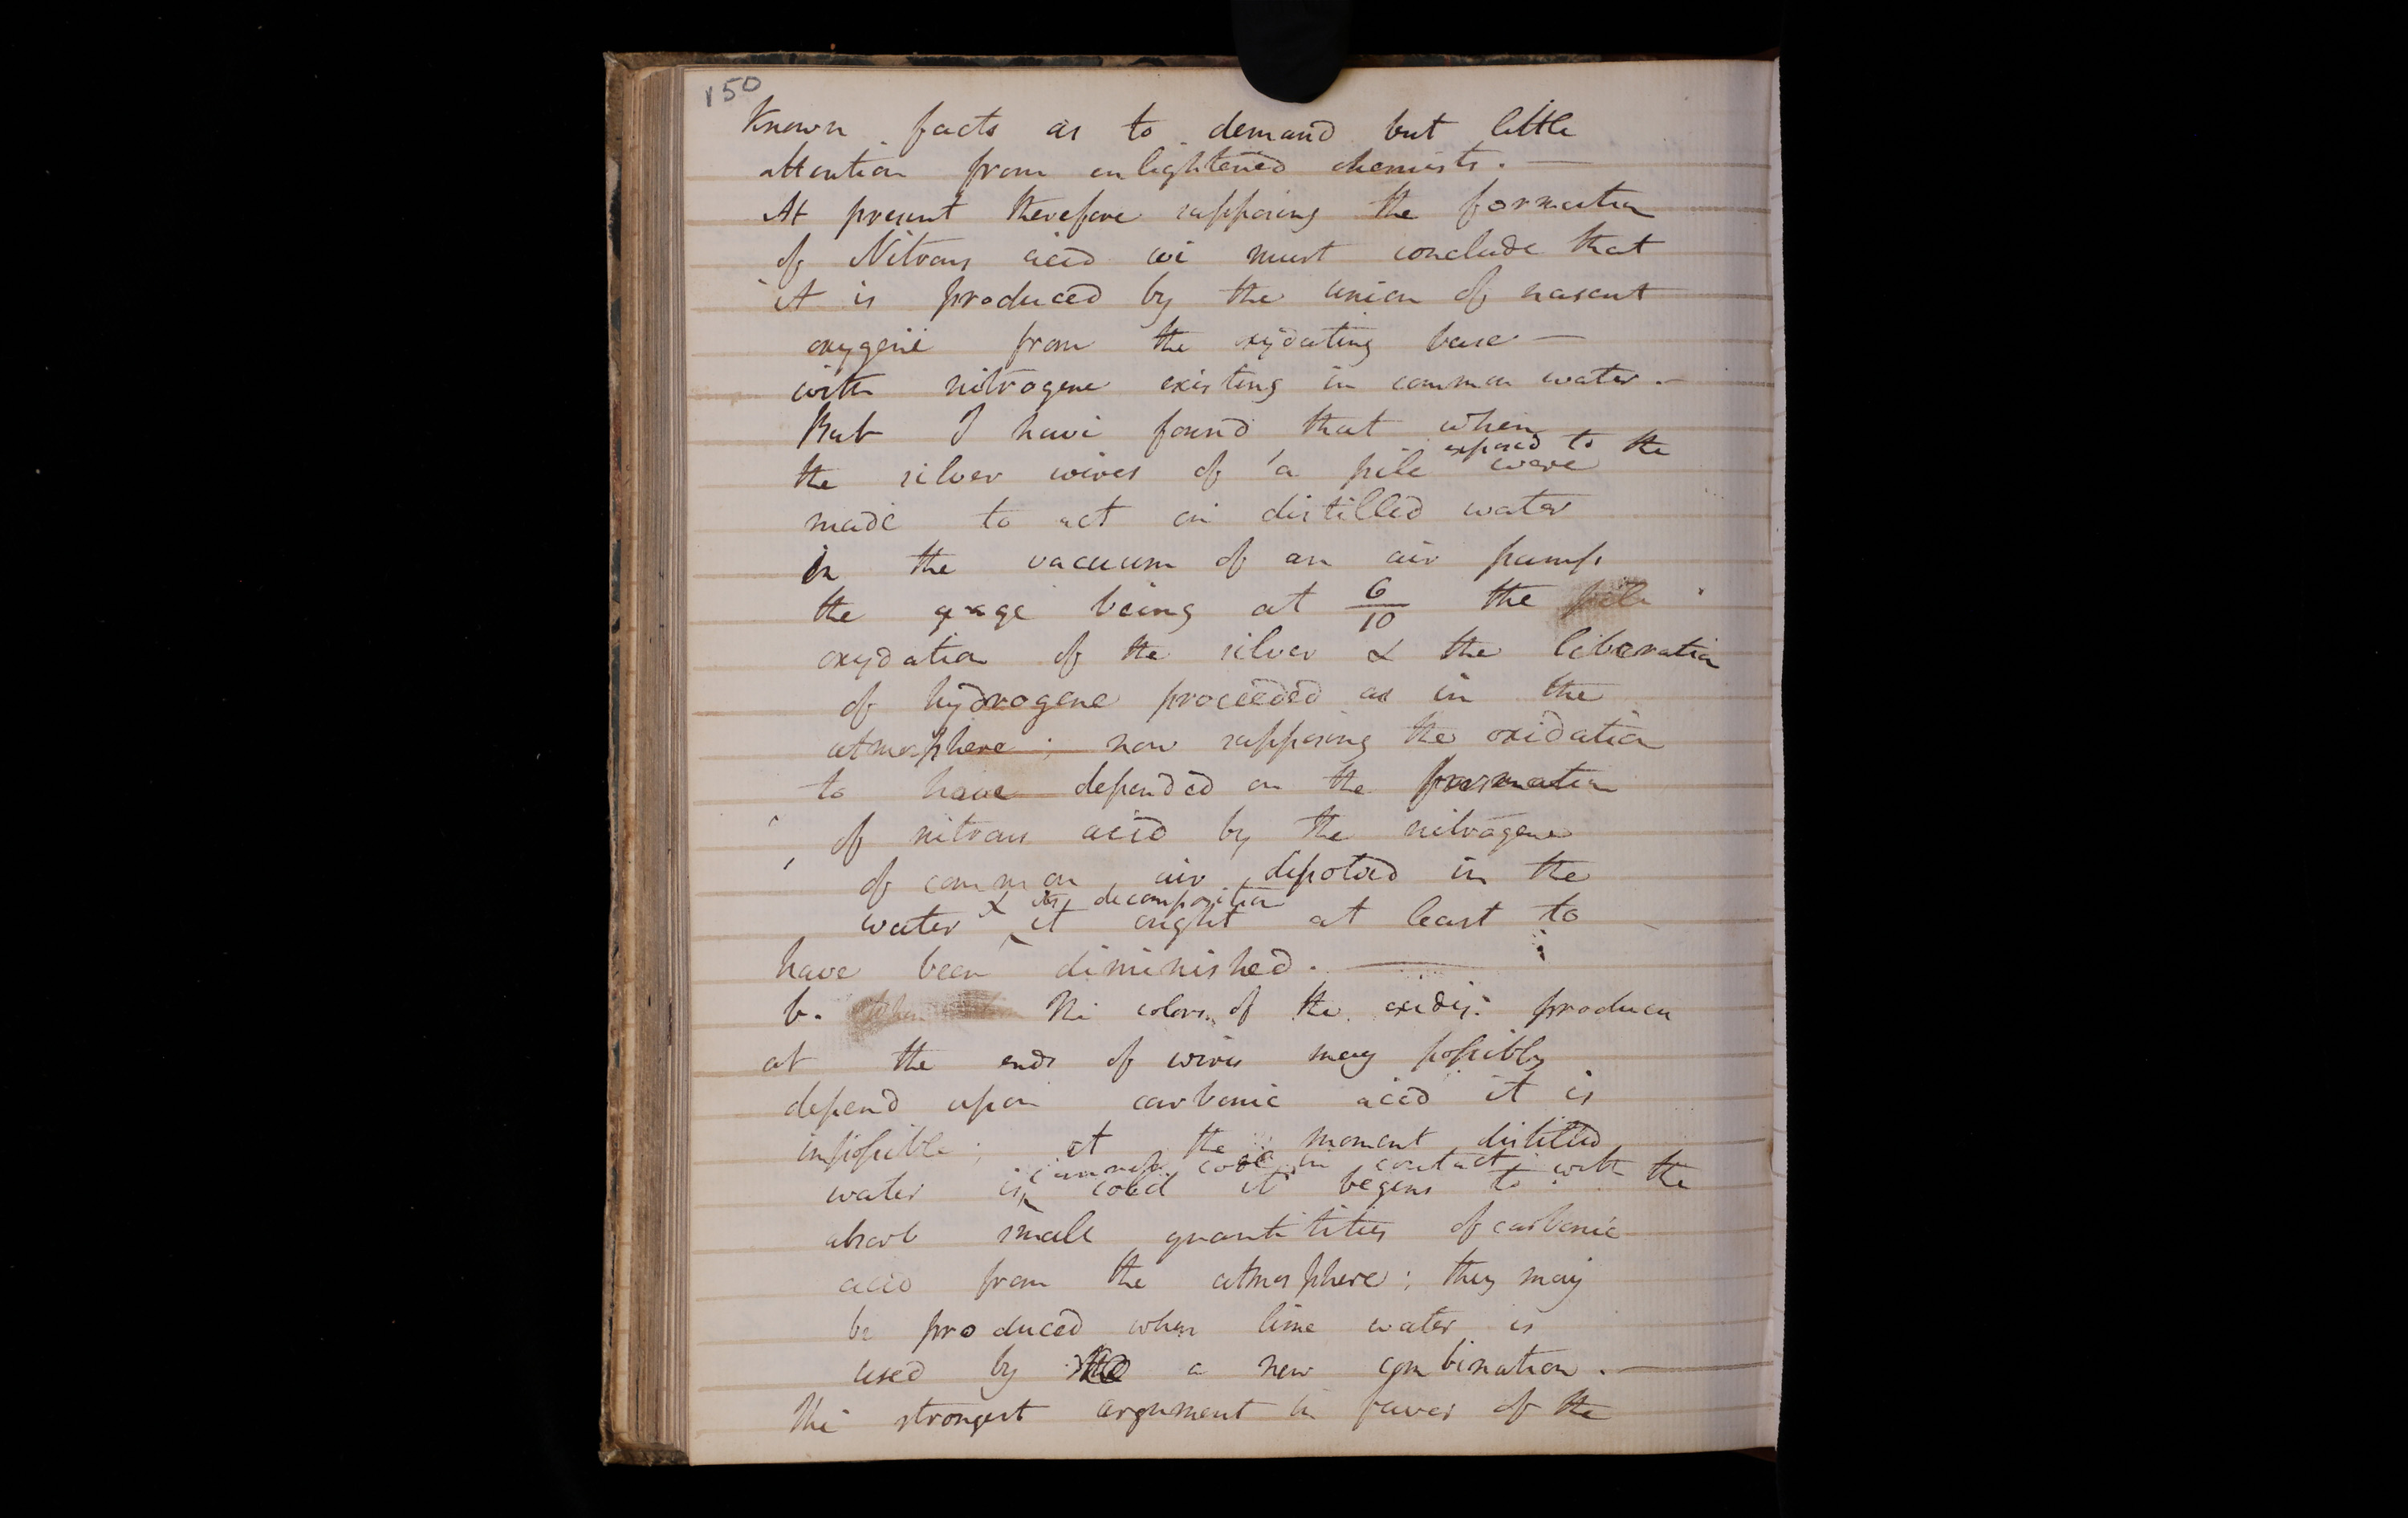 150
Known facts as to demand but little
attention from enlightened chemists. —
At present therefore supposing the formation
of Nitrous acid we must conclude that
it is produced by the union of nascent
oxygene from the oxydating base —
with nitrogene existing in common water. —
But I have found that when
exposed to the
the silver wires of a pile were
made to act on distilled water
in the vacuum of an air pump
the gage being at 6/10 the pile
oxydation of the silver & the liberation
of hydrogene proceeded as in the
atmosphere; now supposing the oxidation
to have depended on the formation
of nitrous acid by the nitrogene
of common air in the
& its decomposition
water it ought at least to
have been diminished. —
b. When The colors of the oxides produced
at the ends of wires may possibly
depend upon carbonic acid it is
impossible; at the moment distilled
in contact with the
water is cold it begins to
absorb small quantities of carbonic
acid from the atmosphere; they may
be produced when lime water is
used by a new combination. —
The strongest argument in favor of the